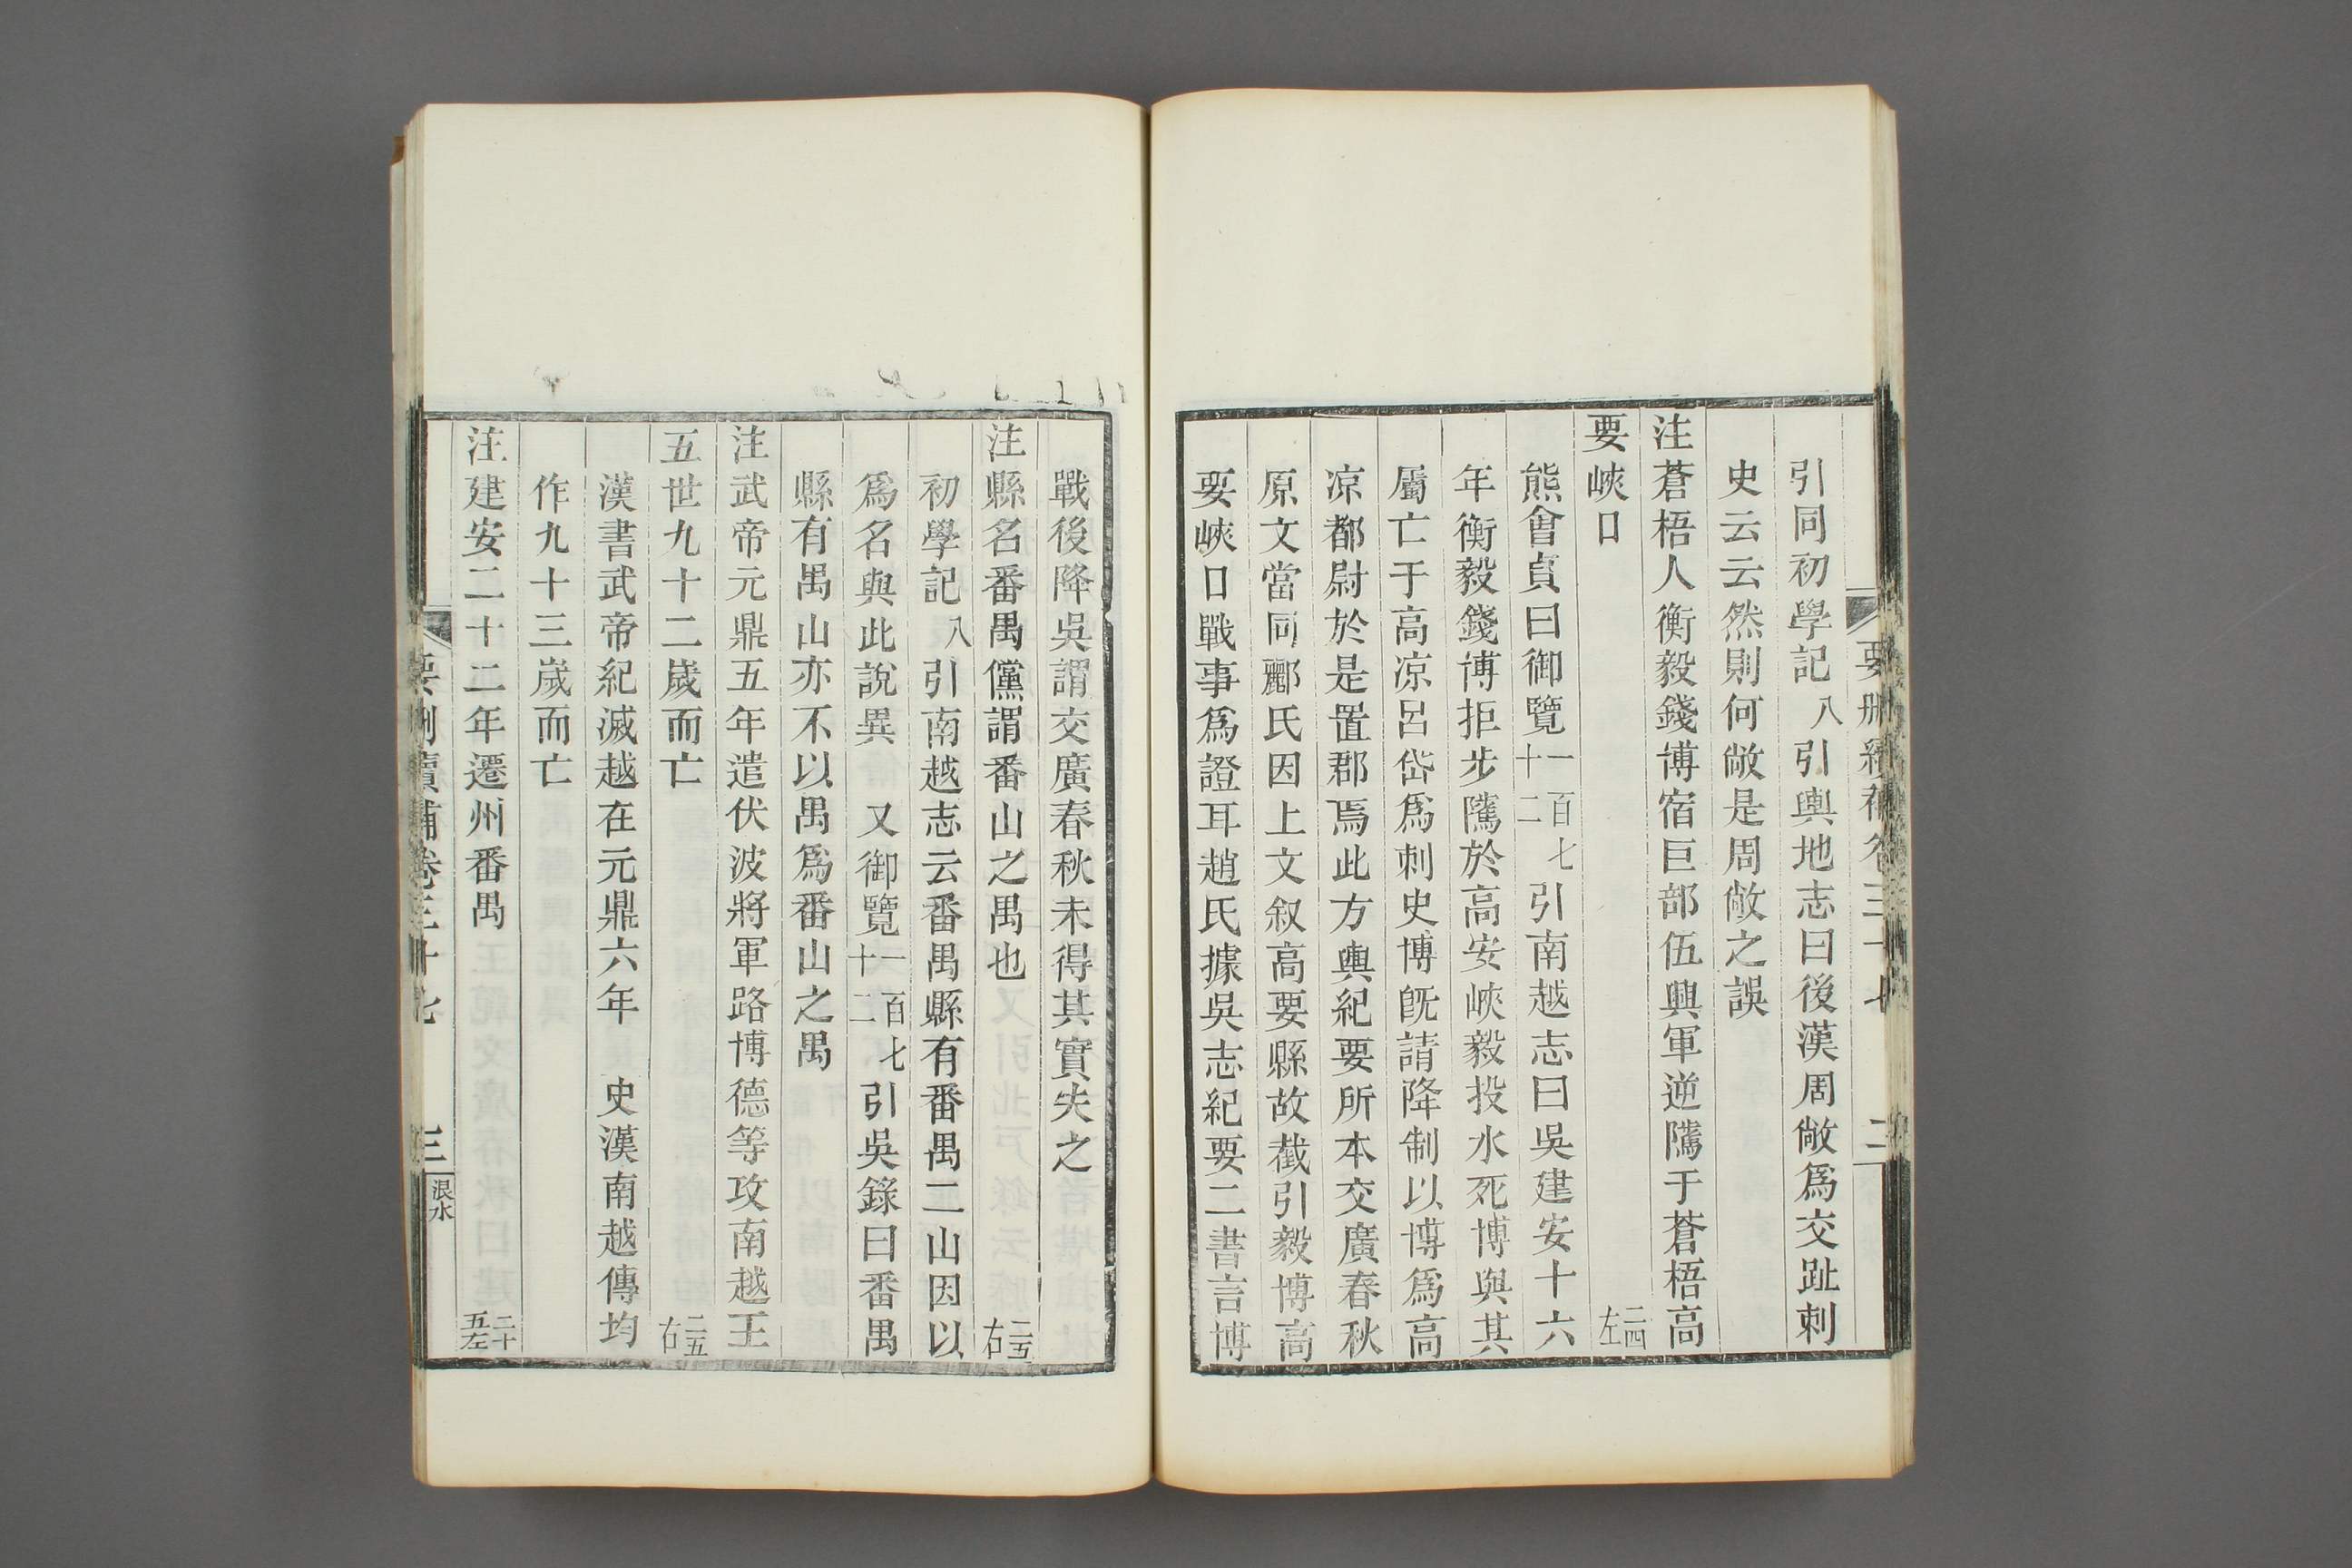 要刪續補卷三十七
二
引同初學記八引輿地志曰後漢周敞爲交趾刺
史云云然則何敞是周敞之誤
注蒼梧人衡毅錢博宿巨部伍興軍逆隲于蒼梧高
要峽口二四左
熊會貞曰御覽一百七十二引南越志曰吳建安十六
年衡毅錢博拒步隲於高安峽毅投水死博與其
屬亡于高凉呂岱爲刺史博旣請降制以博爲高
凉都尉於是置郡焉此方輿紀要所本交廣春秋
原文當同酈氏因上文叙高要縣故截引毅博高
要峽口戰事爲證耳趙氏據吳志紀要二書言博
戰後降吳謂交廣春秋未得其實失之
注縣名番禺儻謂番山之禺也二五右
初學記八引南越志云番禺縣有番禺二山因以
爲名與此說異 又御覽一百七十二引吳錄曰番禺
縣有禺山亦不以禺爲番山之禺
注武帝元鼎五年遣伏波將軍路博德等攻南越王
五世九十二歲而亡二五右
漢書武帝紀滅越在元鼎六年 史漢南越傳均
作九十三歲而亡
注建安二十二年遷州番禺二十五左
要刪續補卷三十七
三
泿水